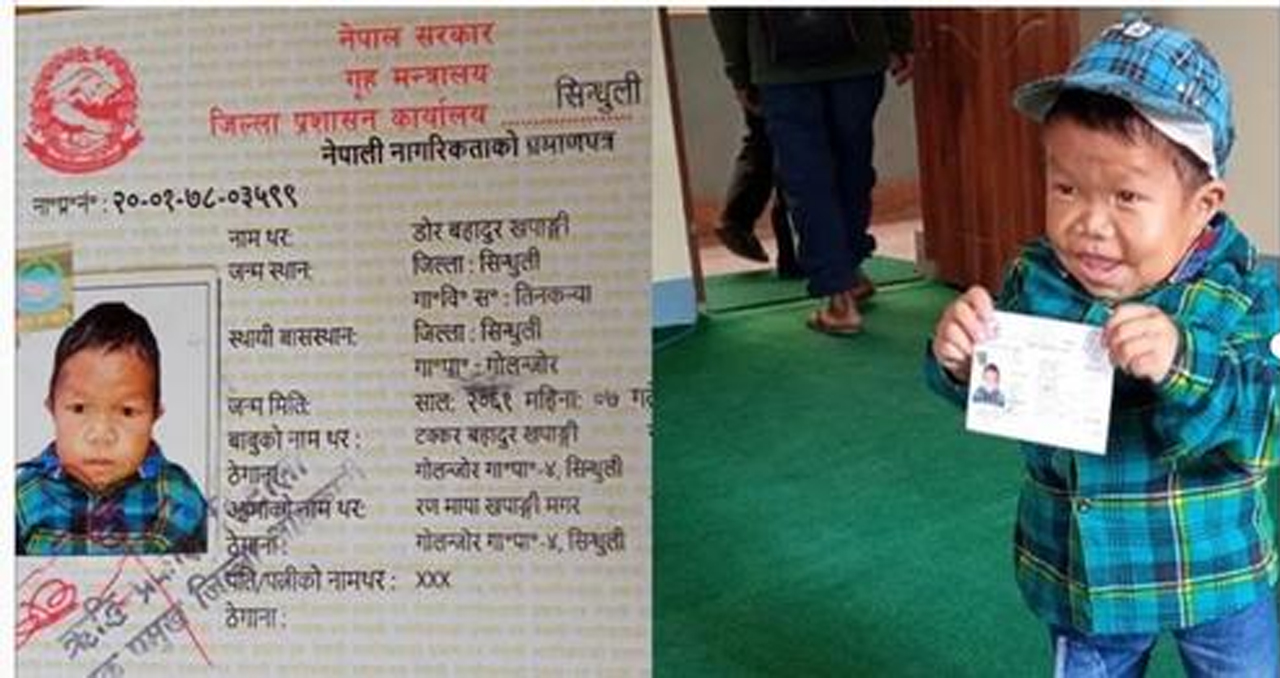 नेपाल सरकार
गृह मन्त्रालय
जिल्ला प्रशासन कार्यालय सिन्धुली
नेपाली नागरिकताको प्रमाणपत्र
ना॰प्र॰नं॰ : २०-०१-७८-०३५९९
नाम थर: डोर बहादुर खपाङ्गी
जन्म स्थान: जिल्ला : सिन्धुली
गा॰वि॰ स॰ : तिनकन्या
स्थायी बासस्थान: जिल्ला : सिन्धुली
गा॰पा॰ : गोलन्जोर
जन्म मिति: साल: २०६१ महिना: ०७
बाबुको नाम थर : टक्कर बहादुर खपाङ्गी
ठेगाना : गोलन्जोर गा॰पा॰-४, सिन्धुली
आमाको नाम थर: रण मापा खपाङ्गी मगर
ठेगाना : गोलन्जोर गा॰पा॰-४, सिन्धुली
पति/पत्नीको नामथर : XXX
ठेगाना :